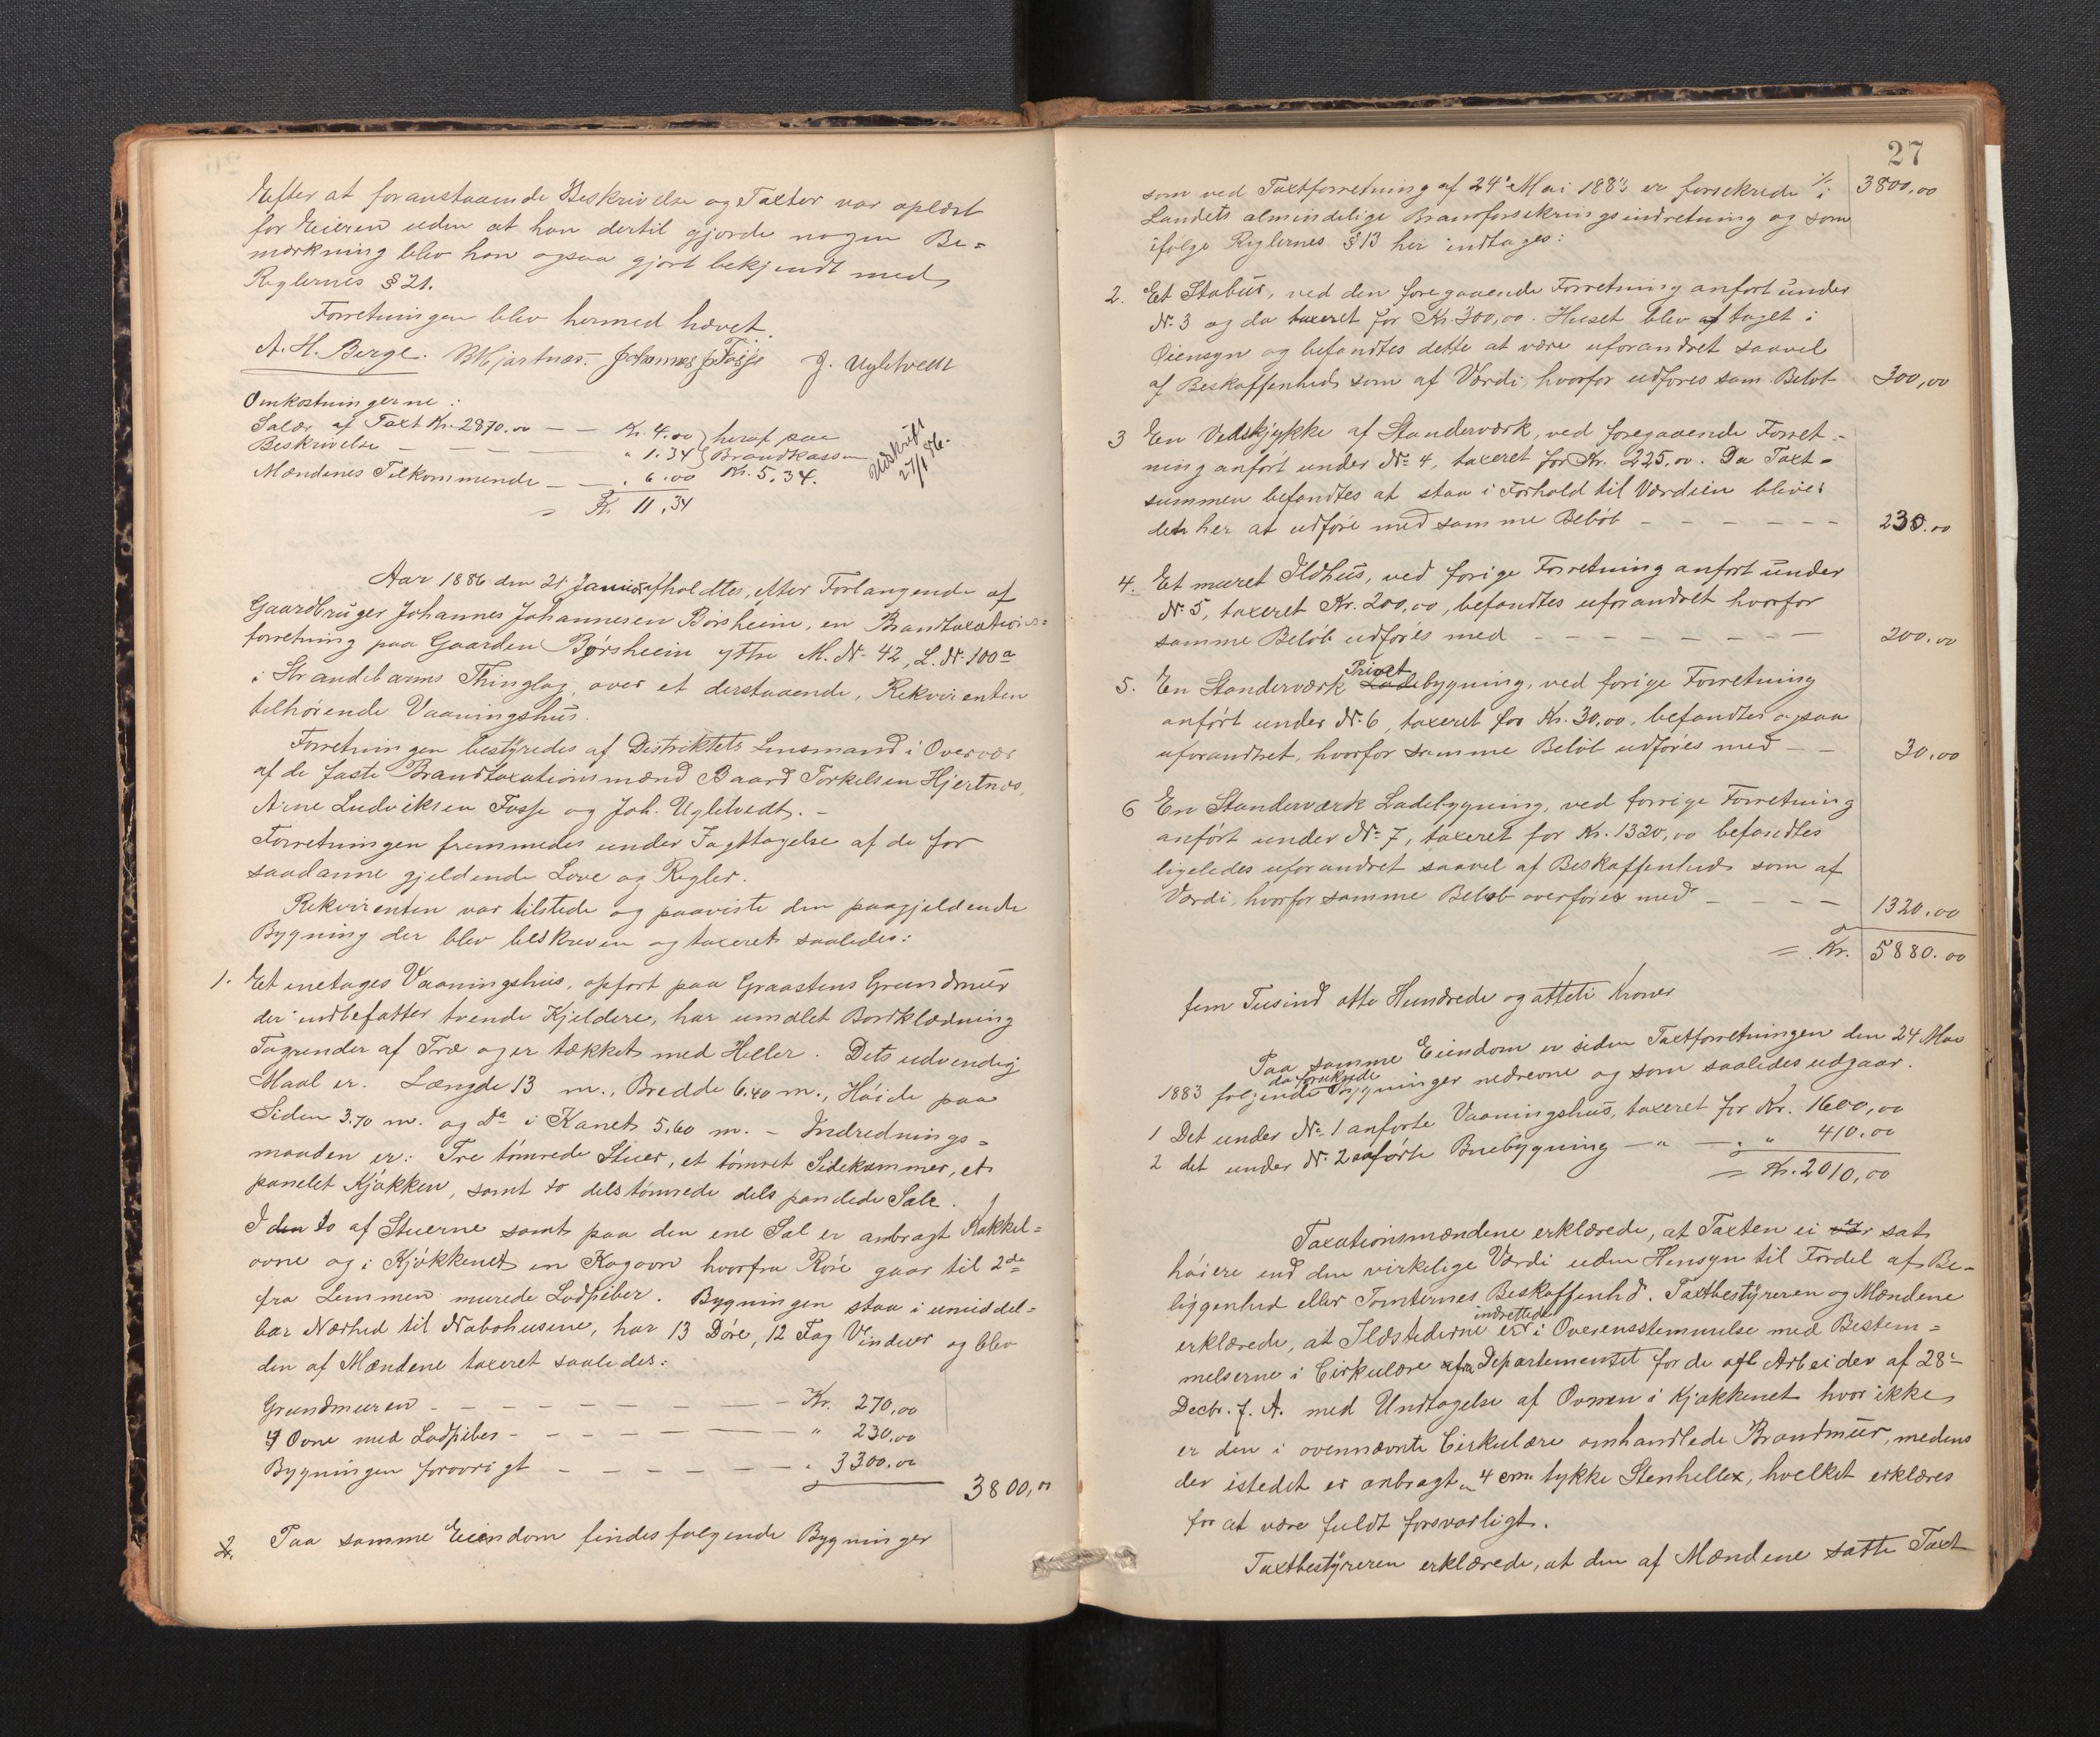 Efter at foranstaaende Beskrivelse og Taxter var oplæst
for Eieren uden at han dertil gjorde nogen Be=
mærkning blev han ogsaa gjort bekjendt med
Reglernes § 21.
Forretningen blev hermed hævet.
A. H. Berge. BHjartnæs. Johannes J. Fosse J. Ugletvedt
Omkostningerne:
Salær af Taxt Kr. 2870.00 — — Kr. 4.00 } heraf paa
Beskrivelse — — — — — " 1.34 } Brandkassen
Mændenes Tilkommende — — " 6.00 Kr. 5.34.
= Kr. 11.34
Udskrift
27/1 86.
Aar 1886 den 21 Januar afholdtes, efter Forlangende af
Gaardbruger Johannes Johannesen Børsheim, en Brandtaxations=
forretning paa Gaarden Børsheim yttre M. Nr. 42, L. Nr. 100a
i Strandebarms Thinglag, over et derstaaende, Rekvirenten
tilhørende Vaaningshus.
Forretningen bestyredes af Distriktets Lensmand i Overvær
af de faste Brandtaxationsmænd Baard Torkelsen Hjertnæs,
Arne Ludviksen Fosse og Joh. Ugletvedt. —
Forretningen fremmedes under Iagttagelse af de for
saadanne gjeldende Love og Regler.
Rekvirenten var tilstede og paaviste den paagjeldende
Bygning der blev beskreven og taxeret saaledes:
1. Et enetages Vaaningshus, opført paa Graastens Grundmur
der indbefatter tvende Kjeldere, har umalet Bordklædning
Tagrender af Træ og er tækket med Heller. Dets udvendig
Maal er. Længde 13 m., Bredde 6.40 m., Høide paa
Siden 3.70 m. og Do i Kanet 5.60 m. — Indrednings=
maaden er: Tre tømrede Stuer, et tømret Sidekammer, et
panelet Kjøkken, samt to dels tømrede dels panelede Sale.
I den to af Stuerne samt paa den ene Sal er anbragt Kakkel=
ovne og i Kjøkkenet en Kogovn hvorfra Røre gaar til 2de
fra Lemmen murede Lodpiber. Bygningen staa i umiddel=
bar Nærhed til Nabohusene, har 13 Døre, 12 Fag Vinduer og blev
den af Mændene taxeret saaledes:
Grundmuren — — — — — — — Kr. 270,00
4 Ovne med Lodpiber — — — — — " 230,00
Bygningen forøvrigt — — — — — " 3300.00
3800,00
2. Paa samme Eiendom findes følgende Bygninger
27
som ved Taxtforretning af 24de Mai 1883 er forsekrede i 3800,00
Landets almindelige Brandforsekringsindretning og som
ifølge Reglernes § 13 her indtages:
2. Et Stabur, ved den foregaaende Forretning anført under
Nr. 3 og da taxeret for Kr. 300,00. Huset blev af taget i
Øiensyn og befandtes dette at være uforandret saavel
af Beskaffenhed som af Værdi, hvorfor udføres sam. Beløb 300,00
3 En Vedskjykke af Standerværk, ved foregaaende Forret=
ning anført under Nr. 4, taxeret for Kr. 225,00. Da Taxt=
summen befandtes at staa i Forhold til Værdien bliver
det her at udføre med samme Beløb — — — — — — 230.00
4. Et muret Ildhus, ved forige Forretning anført under
Nr. 5, taxeret Kr. 200,00, befandtes uforandret hvorfor
samme Beløb udføres med — — — — — — — — 200.00
5. En Standerværk Ladebygning, ved forige Forretning
Privet
anført under Nr. 6, taxeret for Kr. 30,00, befandtes ogsaa
uforandret, hvorfor samme Beløb udføres med — — 30.00
6 En Standerværk Ladebygning, ved forrige Forretning
anført under Nr. 7, taxeret for Kr. 1320,00 befandtes
ligeledes uforandret saavel af Beskaffenhed som af
Værdi, hvorfor samme Beløb overføres med — — — — 1320.00
= Kr. 5880.00
fem Tusind otte Hundrede og otteti Kroner
Paa samme Eiendom er siden Taxtforretningen den 24 Mai
1883 følgende da forsekrede Bygninger nedrevne og som saaledes udgaar.
1 Det under Nr. 1 anførte Vaaningshus, taxeret for Kr. 1600,00
2 det under Nr. 2 anførte Buebygning — " — " " 410.00
= Kr. 2010,00
Taxationsmændene erklærede, at Taxten ei er sat
høiere end den virkelige Værdi uden Hensyn til Fordel af Be=
liggenhed eller Tomternes Beskaffenhd. Taxtbestyreren og Mændene
erklærede, at Ildstederne er indrettede i Overensstemmelse med Bestem=
melserne i Cirkulære fra Departementet for de offl. Arbeider af 28de
Decbr. f. A. med Undtagelse af Ovnen i Kjøkkenet hvor ikke
er den i ovennævnte Cirkulære omhandlede Brandmur, medens
der istedet er anbragt 4 cm. tykke Stenheller, hvilket erklæres
for at være fuldt forsvarligt.
Taxtbestyreren erklærede, at den af Mændene satte Taxt